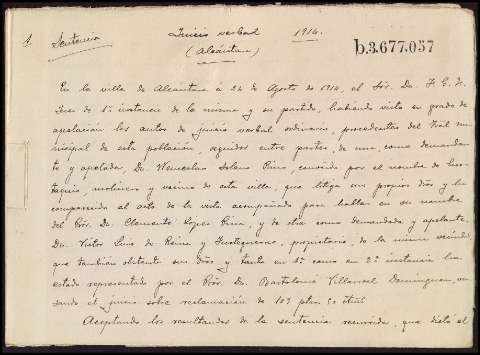 Sentencia
Juicio verbal 1914.
(Alcántara)
b.3.677.057
En la villa de Alcántara a 24 de Agosto de 1914, el Sor. Dn. F. G. N.
Juez de 1ª instancia de la misma y su partido, habiendo visto en grado de
apelación los autos de juicio verbal ordinario, procedentes del Tral mu-
nicipal de esta población, seguidos entre partes, de una, como demandan-
te y apelada, Dn. Wenceslao Solano Pino, conocido por el nombre de
molinero y vecino de esta villa, que litiga con propios dros y ha
comparecido al acto de la vista acompañado para hablar en su nombre
del Pror. Dn. Clemente Lopez Pino, y de otra como demandada y apelante,
Dn. Victor Luis de Reina y propietario, de la misma vecindad
que tambien obstenta sus dros y tanto en 1ª como en 2ª instancia ha
estado representado por el Pror. Dn. Bartolomé Villarroel Dominguez, ver-
sando el juicio sobre reclamación de 103 ptas. 50
Aceptando los resultandos de la sentencia recurrida, que dictó el